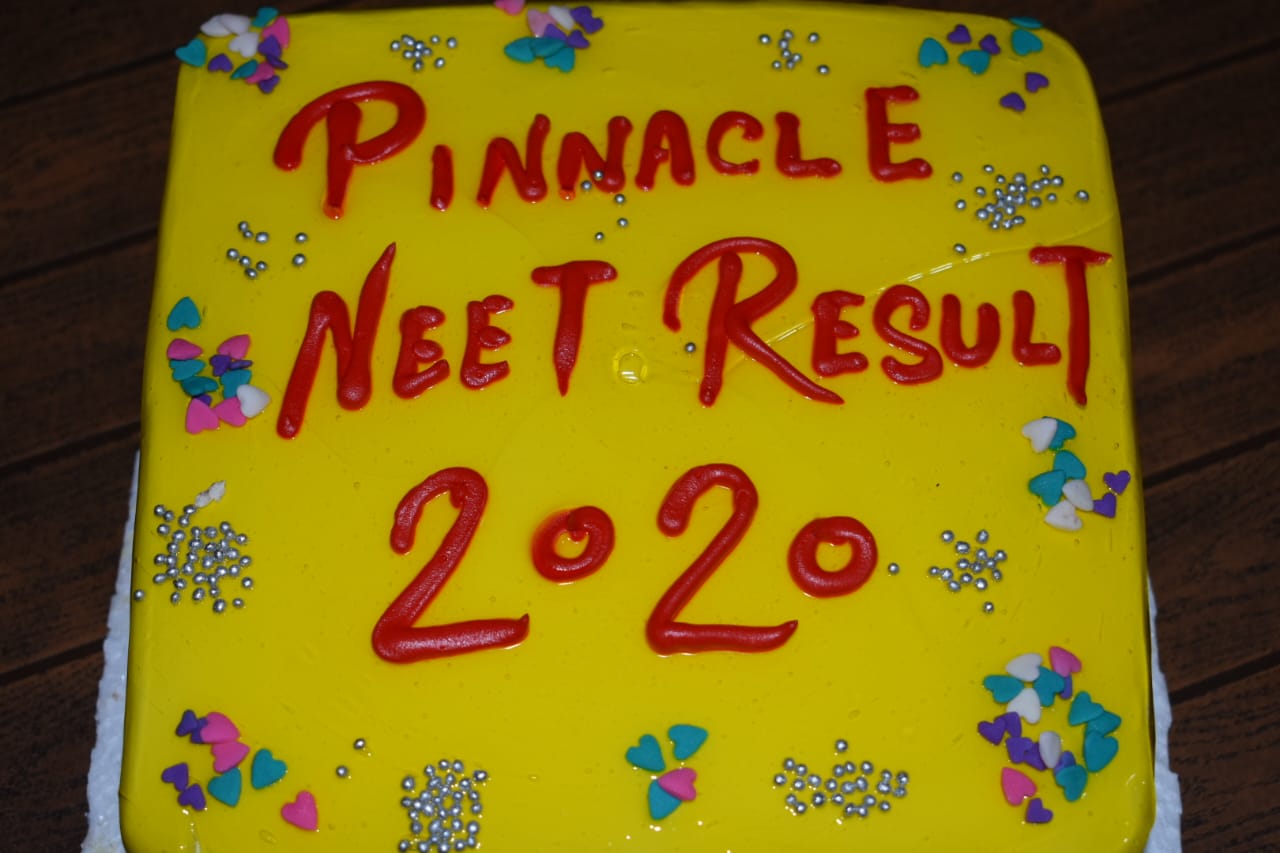 PINNACLE
NEET RESULT
2020